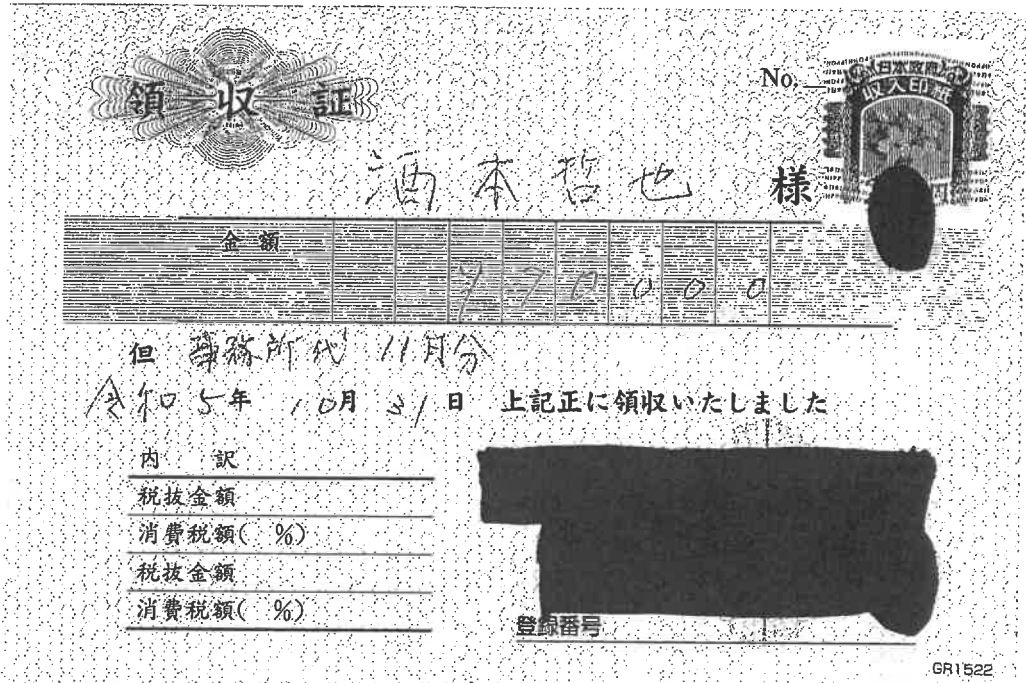 領収証
No.
日本政府
収入印紙
酒本哲也 様
金額 ¥70000
但 事務所代 11月分
令和5年 10月31日 上記正に領収いたしました
内 訳
税抜金額
消費税額( %)
税抜金額
消費税額( %)
登録番号
GR1522